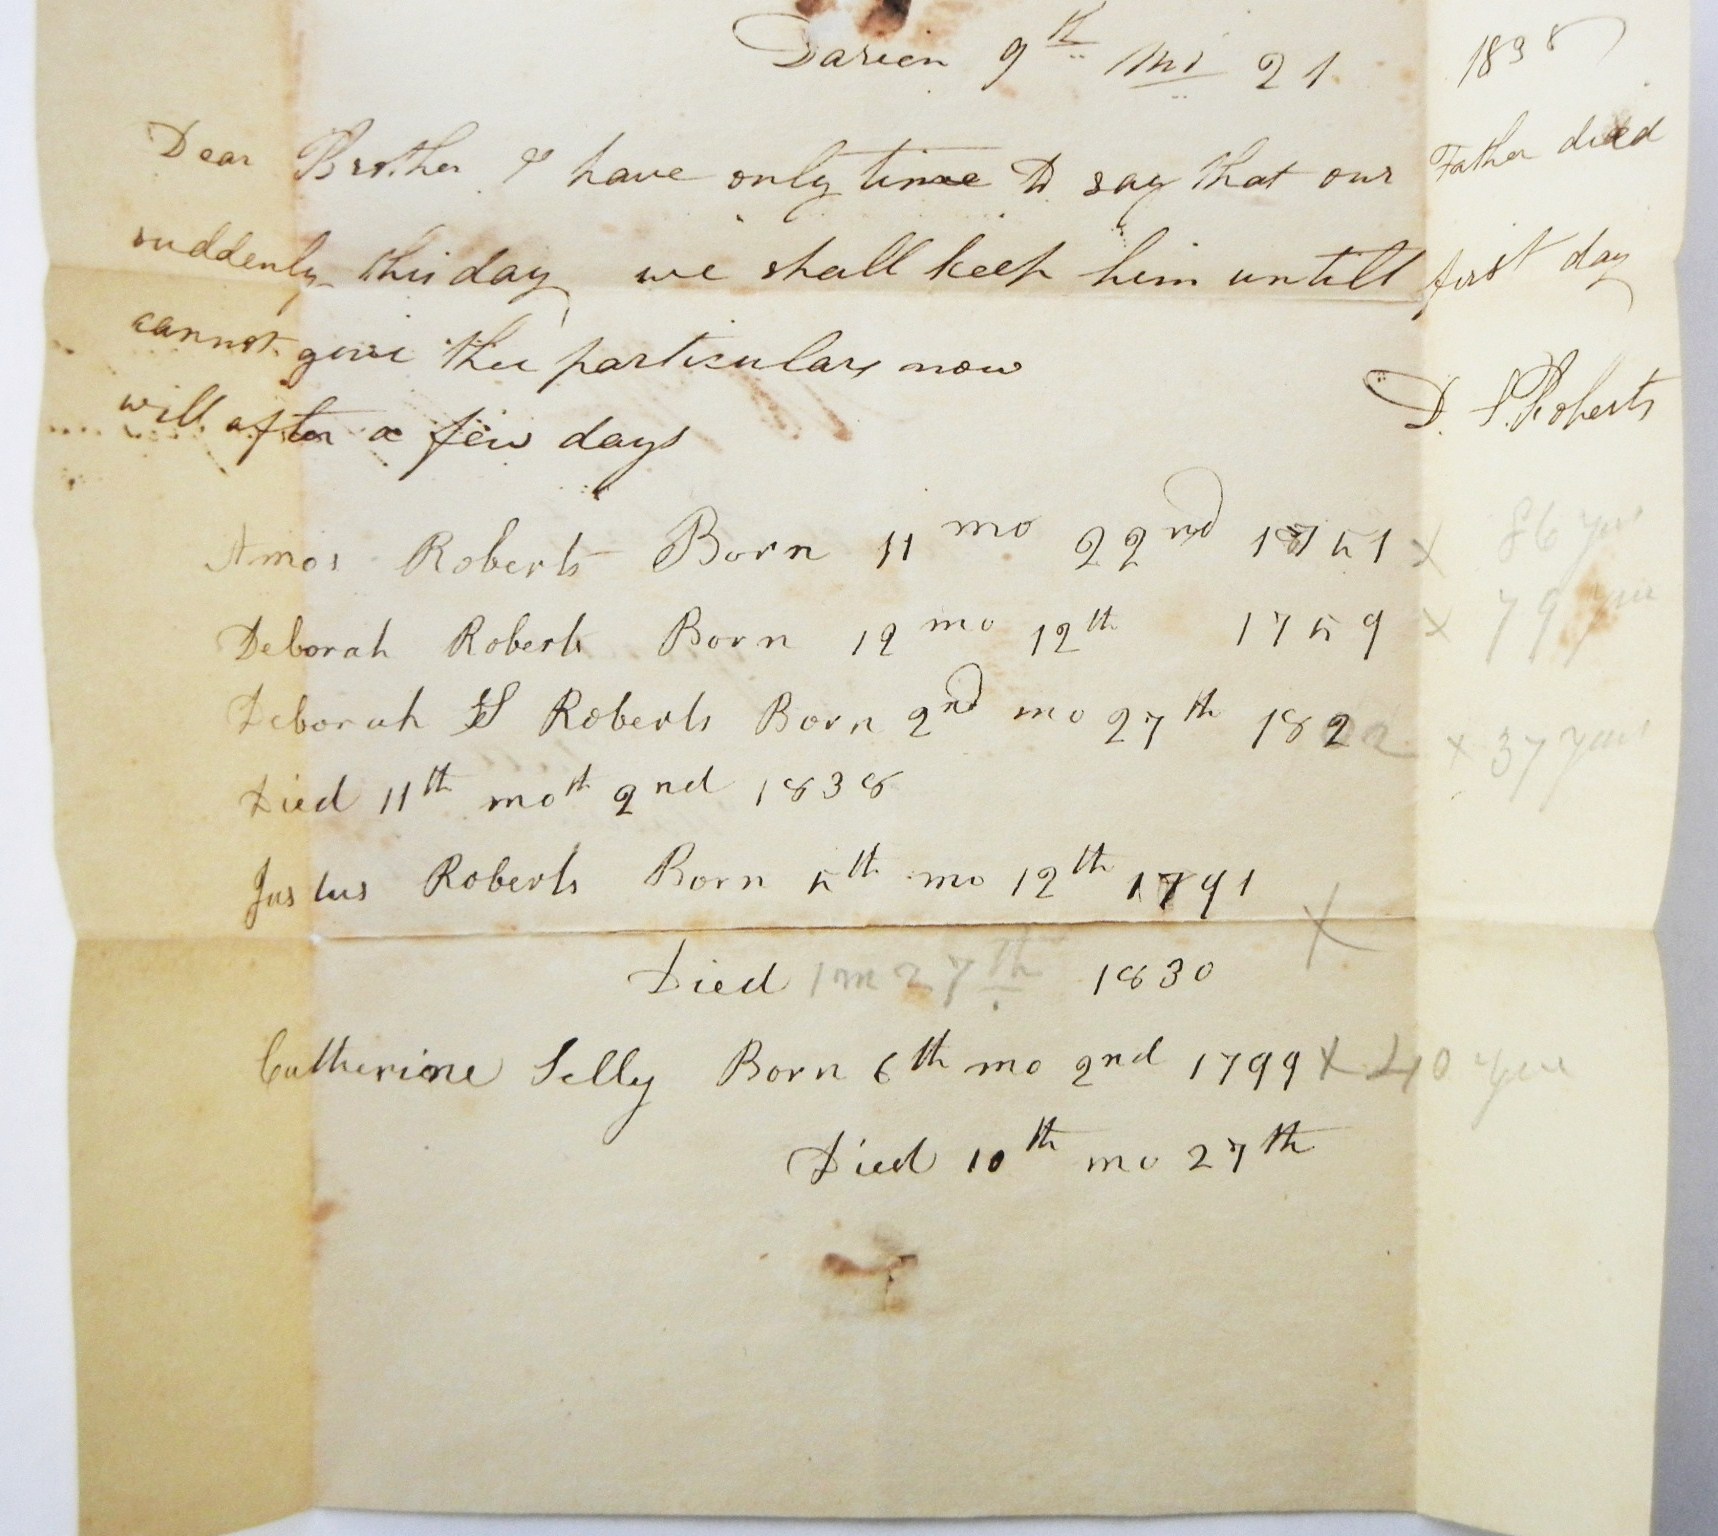 Darien 9th mo 21 1838
Dear Brother I have only time to say that our Father died
suddenly this day we shall keep him untill first day
cannot give thee particulars now
will after a few days D. S. Roberts
Amos Roberts Born 11 mo 22nd 1751 x 86 years
Deborah Roberts Born 12 mo 12th 1759 x 79 years
Deborah S Roberts Born 2nd mo 27th 1822 x 37 years
Died 11th moth 2nd 1838
Justus Roberts Born 5th mo 12th 1791
x
Died 1 m 27th 1830
Catherine Selly Born 6th mo 2nd 1799 x 40 years
Died 10th mo 27th